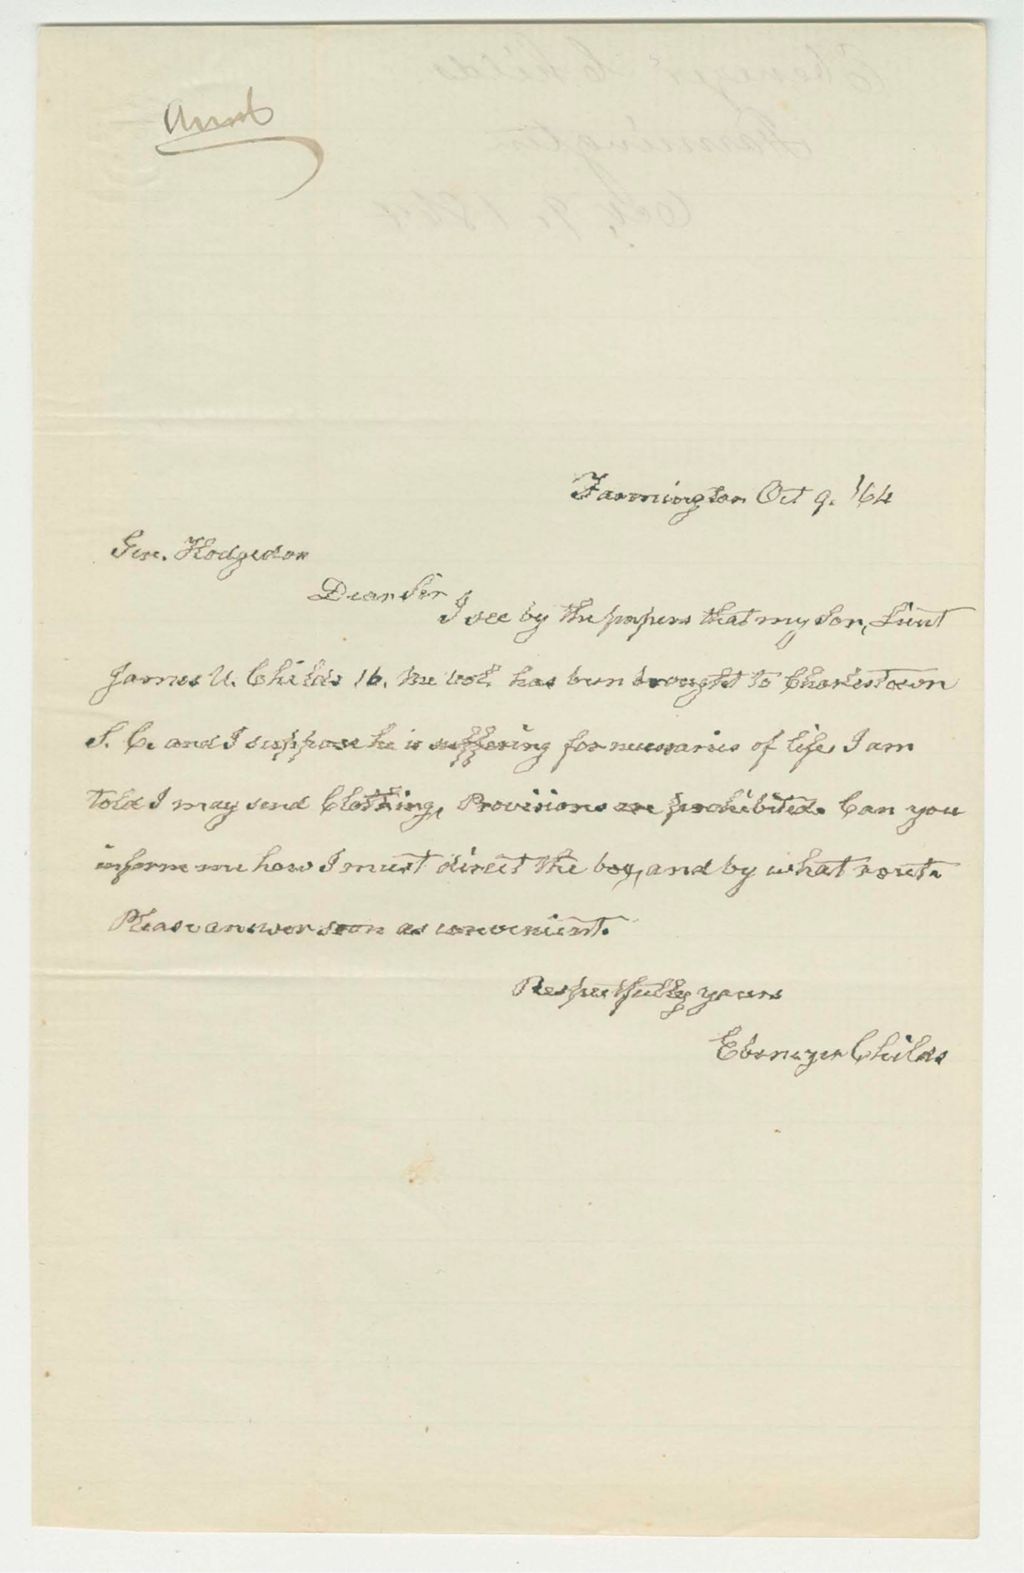 Farmington Oct 9. '64
Gen. Hodgsdon
Dear Sir
I see by the papers that my Son, Lieut
James U. Childs 16. Me Vol. has been brought to Charlestown
S. C. and I suppose he is suffering for necessaries of life, I am
told I may send Clothing, Provisions are prohibited. Can you
inform me how I must direct the box, and by what rout.
Please answer soon as convenient.
Respectfully yours
Ebenezer Childs